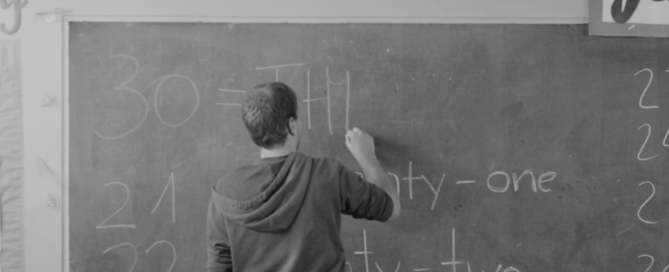 30 = THI
21 nty-one
22 ty-tw
2
24
2
2